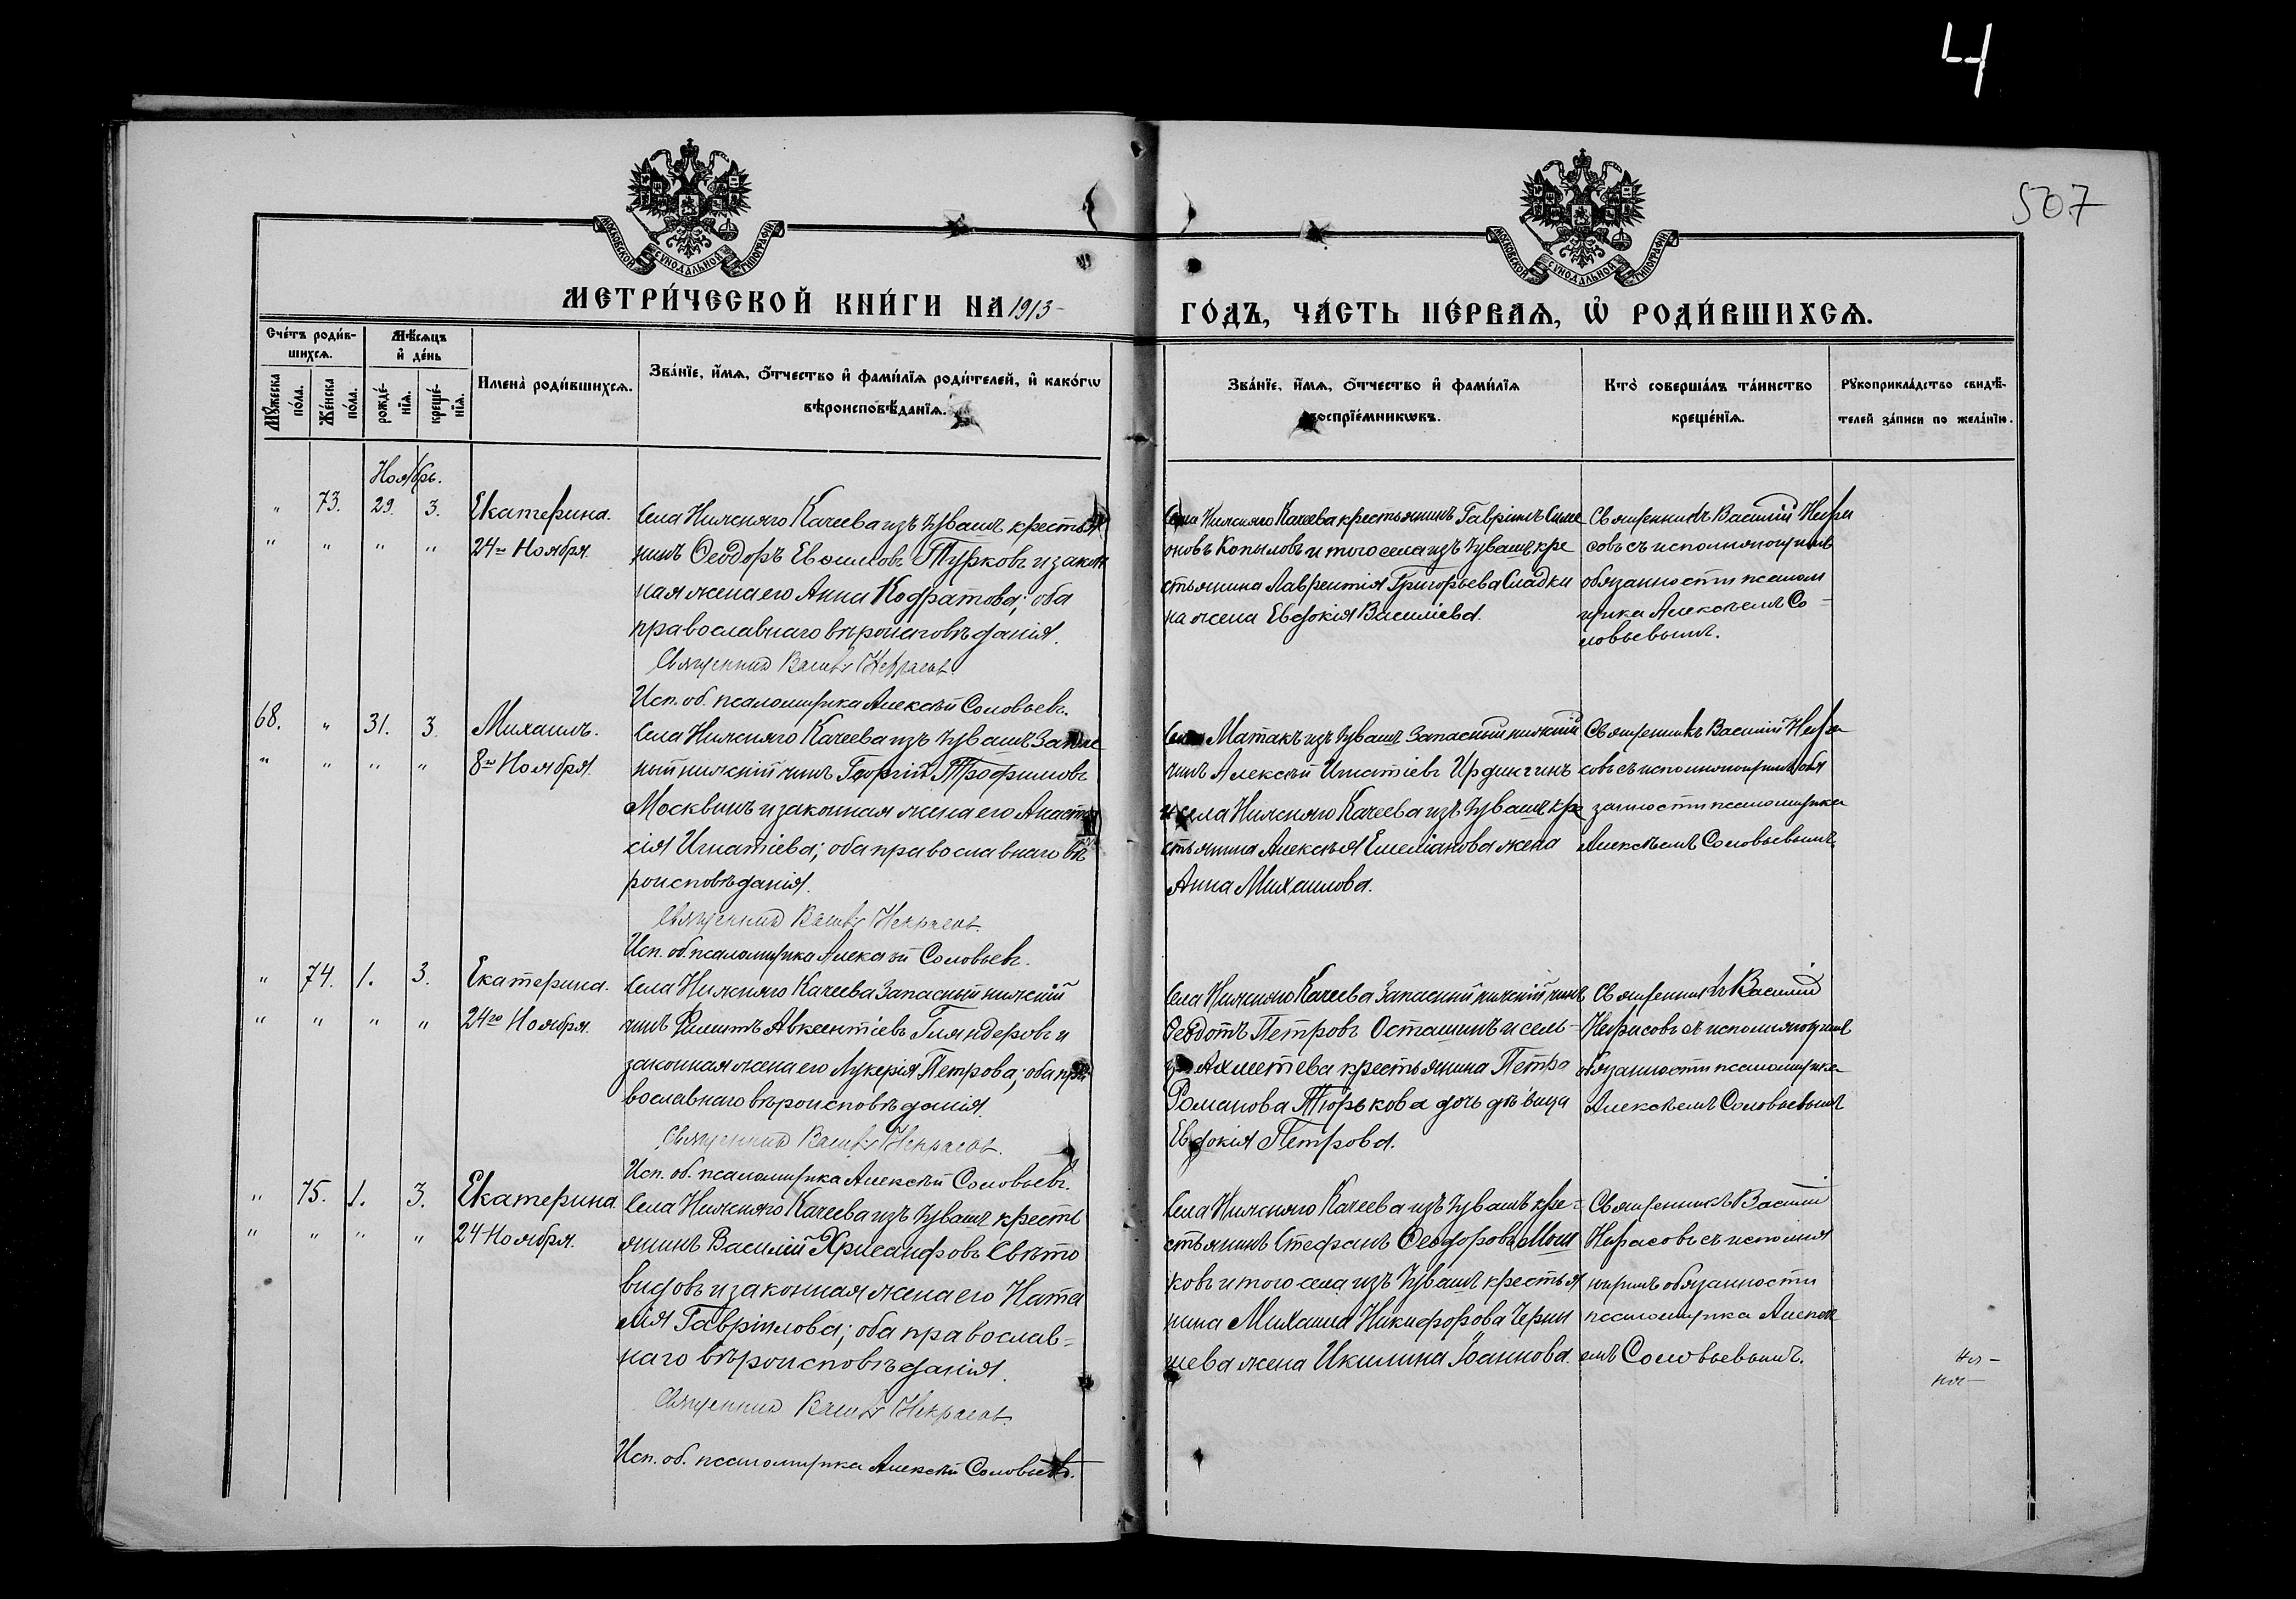 4
507
МОСКОВСКОЙ СѴНОДАЛЬНОЙ ТИПОГРАФІИ
МОСКОВСКОЙ СѴНОДАЛЬНОЙ ТИПОГРАФІИ
МЕТРИ́ЧЕСКОЙ КНИ́ГИ НА 1913
ГО́ДЪ, ЧА́СТЬ ПЕ́РВАѦ, Ѡ҆ РОДИ́ВШИХСѦ.
Сче́тъ роди́в-
шихсѧ.
Мѣ́сѧцъ
и҆ де́нь
Мꙋ́жеска
по́ла.
Же́нска
по́ла.
рожде́-
нїѧ.
креще́-
нїѧ.
Имена̀ роди́вшихсѧ.
Зва́нїе, и҆́мѧ, ѻ҆́тчество и҆ фами́лїѧ роди́телей, и҆ како́гѡ
вѣроисповѣ́данїѧ.
Зва́нїе, и҆́мѧ, ѻ҆́тчество и҆ фами́лїѧ
воспрїе́мникѡвъ.
Кто̀ соверша́лъ та́инство
креще́нїѧ.
Рꙋкоприкла́дство свидѣ́-
телей за́писи по жела́нїю.
Ноябрь.
" 73. 29. 3. Екатерина.
" " " " 24го Ноября.
Села Нижняго Качеева изъ Чувашъ крестья
нинъ Ѳеодоръ Евѳимовъ Турковъ и закон
ная жена его Анна Кодратова; оба
православнаго вѣроисповѣданія.
Священникъ Василій Некрасовъ.
Исп. об. псаломщика Алексѣй Соловьевъ.
Села Нижняго Качеева крестьянинъ Гавріилъ Симе
оновъ Копыловъ и того села изъ Чувашъ кре
стьянина Лаврентія Григорьева Сладки
на жена Евдокія Василіева.
Священникъ Василій Некра
совъ съ исполняющимъ
обязанности псалом
щика Алексѣемъ Со=
ловьевымъ.
68. " 31. 3. Михаилъ.
" " " " 8го Ноября.
Села Нижняго Качеева изъ Чувашъ Запас
ный нижній чинъ Георгій Трофимовъ
Москвинъ и законная жена его Анаста
сія Игнатіева; оба православнаго вѣ
роисповѣданія.
Священникъ Василій Некрасовъ.
Исп. об. псаломщика Алексѣй Соловьевъ.
Села Матакъ изъ Чувашъ Запасный нижній
чинъ Алексѣй Игнатіевъ
и села Нижняго Качеева изъ Чувашъ кре
стьянина Алексѣя Емеліанова жена
Анна Михаилова.
Священникъ Василій Некра
совъ съ исполняющимъ обя
занности псаломщика
Алексѣемъ Соловьевымъ.
" 74. 1. 3. Екатерина.
" " " " 24го Ноября.
Села Нижняго Качеева Запасный нижній
чинъ Филиппъ Авксентіевъ Гляндеровъ и
законная жена его Лукерія Петрова; оба пра
вославнаго вѣроисповѣданія.
Священникъ Василій Некрасовъ.
Исп. об. псаломщика Алексѣй Соловьевъ.
Села Нижняго Качеева Запасный нижній чинъ
Ѳеодотъ Петровъ Осташинъ и сель
ца Ахметева крестьянина Петра
Романова Тюрькова дочь дѣвица
Евдокія Петрова.
Священникъ Василій
Некрасовъ съ исполняющимъ
обязанности псаломщика
Алексѣемъ Соловьевымъ
" 75. 1. 3. Екатерина.
" " " " 24 Ноября.
Села Нижняго Качеева изъ Чувашъ кресть
янинъ Василій Хрисанфовъ Свѣто
видовъ и законная жена его Ната
лія Гавріилова; оба православ=
наго вѣроисповѣданія.
Священникъ Василій Некрасовъ.
Исп. об. псаломщика Алексѣй Соловьевъ.
Села Нижняго Качеева изъ Чувашъ кре=
стьянинъ Стефанъ Ѳеодоровъ Мош
ковъ и того села изъ Чувашъ крестья
нина Михаила Никифорова Черны
шева жена Икилина Іоаннова.
Священникъ Василій
Некрасовъ съ исполня
ющимъ обязанности
псаломщика Алексѣ
емъ Соловьевымъ.